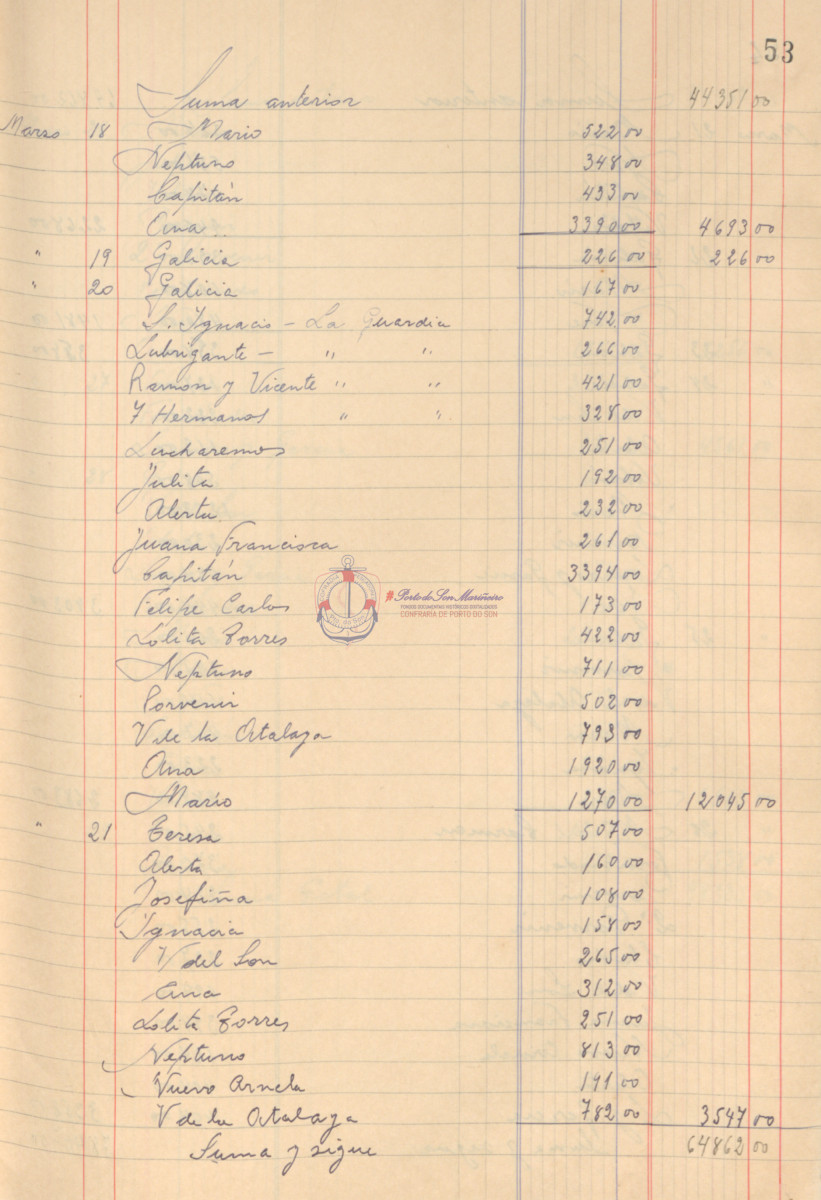 53
Suma anterior 44351 00
Marzo 18 Mario 522 00
Neptuno 348 00
Capitán 433 00
Ana 3390 00 4693 00
" 19 Galicia 226 00 226 00
" 20 Galicia 167 00
S. Ignacio - La Guardia 742 00
Lubrigante - " " 266 00
Ramon y Vicente " " 421 00
7 Hermanos " " 328 00
Lucharemos 251 00
Julita 192 00
Alerta 232 00
Juana Francisca 261 00
Capitán 3394 00
Felipe Carlos 173 00
Lolita Torres 422 00
Neptuno 711 00
Porvenir 502 00
V de la Atalaya 793 00
Ana 1920 00
Mario 1270 00 12045 00
" 21 Teresa 507 00
Alerta 160 00
Josefiña 108 00
Ignacia 158 00
V del Son 265 00
Ana 312 00
Lolita Torres 251 00
Neptuno 813 00
Nuevo Arnela 191 00
V de la Atalaya 782 00 3547 00
Suma y sigue 64862 00
#Porto do Son Mariñeiro
FONDOS DOCUMENTAIS HISTÓRICOS DIXITALIZADOS
CONFRARIA DE PORTO DO SON